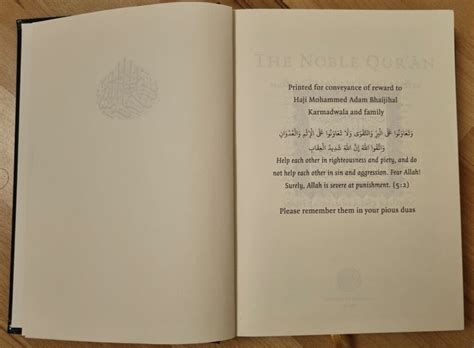 THE NOBLE QUR'ĀN
Printed for conveyance of reward to
Haji Mohammed Adam Bhaijihal
Karmadwala and family
وَتَعَاوَنُوا عَلَى الْبِرِّ وَالتَّقْوَى وَلَا تَعَاوَنُوا عَلَى الْإِثْمِ وَالْعُدْوَانِ
وَاتَّقُوا اللَّهَ إِنَّ اللَّهَ شَدِيدُ الْعِقَابِ
Help each other in righteousness and piety, and do
not help each other in sin and aggression. Fear Allah!
Surely, Allah is severe at punishment. (5:2)
Please remember them in your pious duas